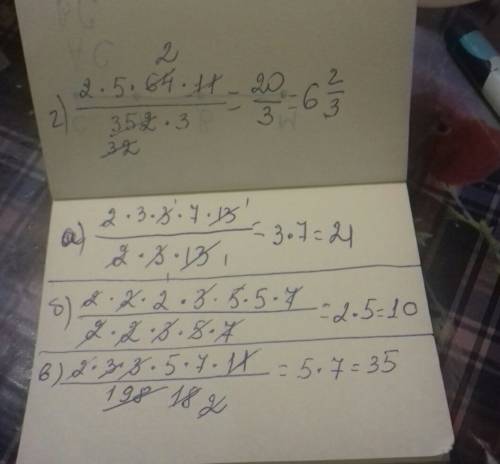 2
г) 2·5·64·11 / 352·3 = 20/3 = 6 2/3
32
а) 2·3·3·7·13 / 2·3·13 = 3·7=21
1 1
1 1
б) 2·2·2·3·5·5·7 / 2·2·3·5·7 = 2·5=10
в) 2·3·3·5·7·11 / 198 18 2 = 5·7=35